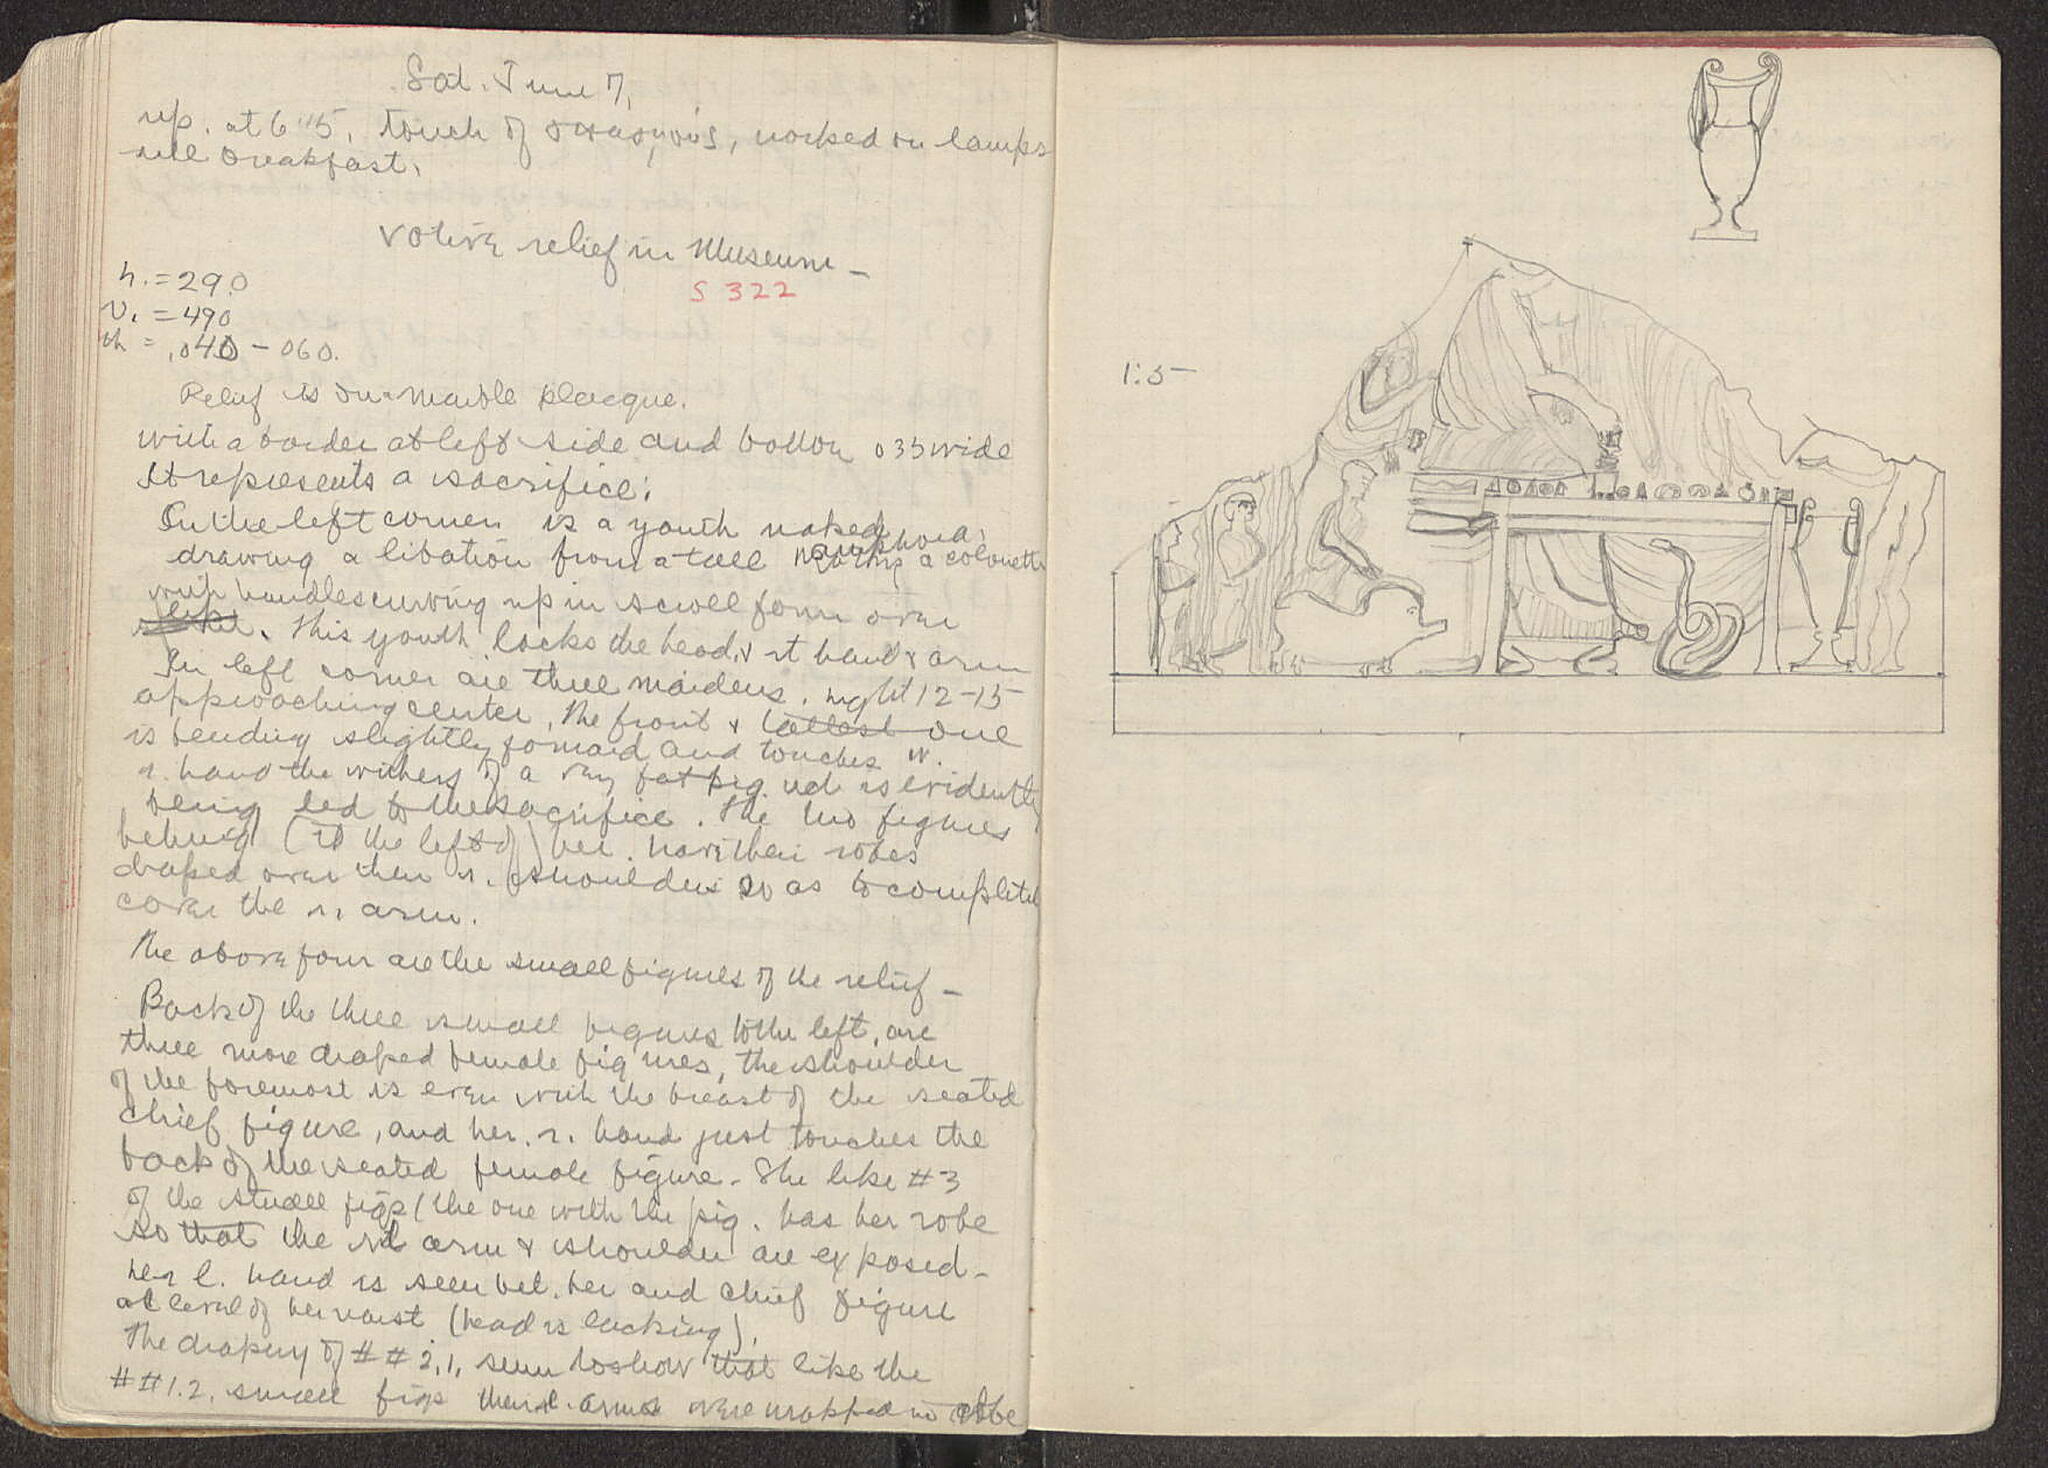 Sat. June 7,
up. at 6 15, touch of, worked on lamps
until breakfast.
Votive relief in Museum –
S 322
h. = 290
w. = 490
th = .040 – 060.
Relief is on marble placque.
with a border at left side and bottom 035 wide
It represents a sacrifice:
In the left corner is a youth naked
drawing a libation from a tall amphora, a colonette
with handles curving up in scroll form over
This youth lacks the head, & rt hand & arm
In left corner are three maidens. hght 12–15
approaching center, the front & tallest one
is bending slightly forward and touches w.
r. hand the withers of a very fat pig wh is evidently
being led to the sacrifice. The two figures
behind (to the left of) her. have their robes
draped over their r. shoulders so as to completely
cover the r. arm.
The above four are the small figures of the relief –
Back of the three small figures to the left, are
three more draped female figures, the shoulder
of the foremost is even with the breast of the seated
chief figure, and her. r. hand just touches the
back of the seated female figure – She like #3
of the small figs (the one with the pig. has her robe
so that the arm & shoulder are exposed –
her l. hand is seen bet. her and chief figure
at level of her waist (head is lacking).
The drapery of ## 2, 1, seem to show that like the
## 1. 2. small figs their arms were wrapped in robe
1:5